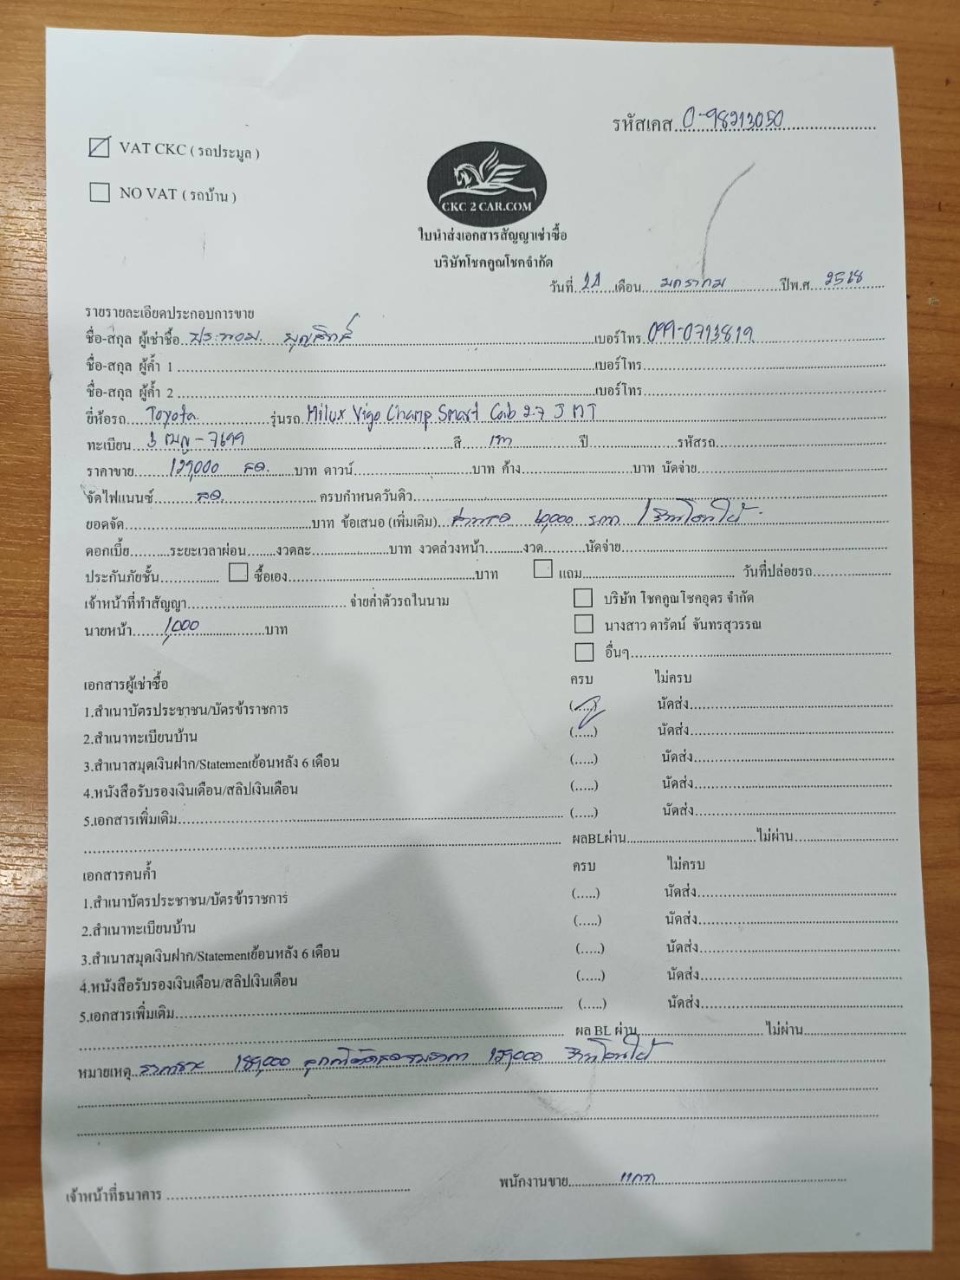 รหัสเคส 0-98213050
VAT CKC ( รถประมูล )
NO VAT ( รถบ้าน )
CKC 2 CAR.COM
ใบนำส่งเอกสารสัญญาเช่าซื้อ
บริษัทโชคคูณโชคจำกัด
วันที่ เดือน มกราคม ปีพ.ศ. 2568
รายรายละเอียดประกอบการขาย
ชื่อ-สกุล ผู้เช่าซื้อ เบอร์โทร 099-0713819
ชื่อ-สกุล ผู้ค้ำ 1 เบอร์โทร
ชื่อ-สกุล ผู้ค้ำ 2 เบอร์โทร
ยี่ห้อรถ Toyota รุ่นรถ Hilux Vigo Champ Smart Cab 2.7 J MT
ทะเบียน สี เทา ปี รหัสรถ
ราคาขาย 129,000 สด. บาท ดาวน์ บาท ค้าง บาท นัดจ่าย
จัดไฟแนนซ์ สด. ครบกำหนดวันดิว
ยอดจัด บาท ข้อเสนอ (เพิ่มเติม)
ดอกเบี้ย ระยะเวลาผ่อน งวดละ บาท งวดล่วงหน้า งวด นัดจ่าย
ประกันภัยชั้น ซื้อเอง บาท แถม วันที่ปล่อยรถ
เจ้าหน้าที่ทำสัญญา จ่ายค่าตัวรถในนาม บริษัท โชคคูณโชคอุดร จำกัด
นายหน้า 1,000 บาท นางสาว ดารัตน์ จันทรสุวรรณ
อื่นๆ
เอกสารผู้เช่าซื้อ ครบ ไม่ครบ
1.สำเนาบัตรประชาชน/บัตรข้าราชการ (.....) นัดส่ง
2.สำเนาทะเบียนบ้าน (.....) นัดส่ง
3.สำเนาสมุดเงินฝาก/Statementย้อนหลัง 6 เดือน (.....) นัดส่ง
4.หนังสือรับรองเงินเดือน/สลิปเงินเดือน (.....) นัดส่ง
5.เอกสารเพิ่มเติม (.....) นัดส่ง
ผลBLผ่าน ไม่ผ่าน
เอกสารคนค้ำ ครบ ไม่ครบ
1.สำเนาบัตรประชาชน/บัตรข้าราชการ (.....) นัดส่ง
2.สำเนาทะเบียนบ้าน (.....) นัดส่ง
3.สำเนาสมุดเงินฝาก/Statementย้อนหลัง 6 เดือน (.....) นัดส่ง
4.หนังสือรับรองเงินเดือน/สลิปเงินเดือน (.....) นัดส่ง
5.เอกสารเพิ่มเติม (.....) นัดส่ง
ผล BL ผ่าน ไม่ผ่าน
หมายเหตุ 189,000 129,000
เจ้าหน้าที่ธนาคาร พนักงานขาย